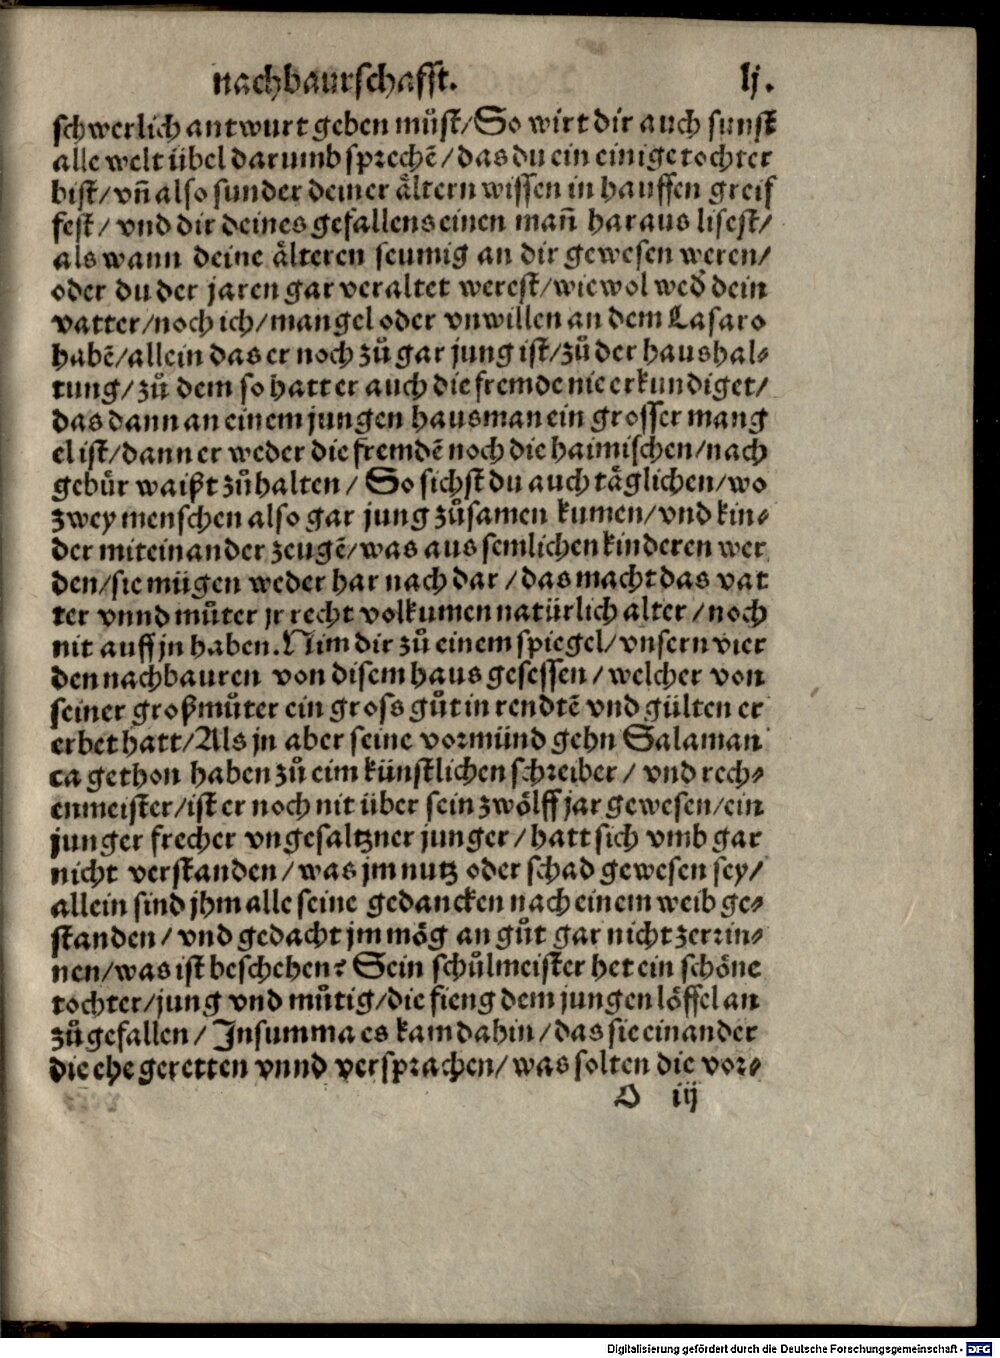 nachbaurschafft. lj.
schwerlich antwurt geben muͤst/So wirt dir auch sunst
alle welt uͤbel darumb sprechẽ/das du ein einige tochter
bist/vñ also sunder deiner aͤltern wissen in hauffen greif
fest/ vnd dir deines gefallens einen mañ haraus lisest/
als wann deine aͤlteren seumig an dir gewesen weren/
oder du der jaren gar veraltet werest/wiewol wed̄ dein
vatter/noch ich/mangel oder vnwillen an dem Lasaro
habẽ/allein das er noch zuͦ gar jung ist/zuͦ der haushal⸗
tung/zuͦ dem so hatt er auch die fremde nie erkundiget/
das dann an einem jungen hausman ein grosser mang
el ist/dann er weder die fremdẽ noch die haimischen/nach
gebuͤr waißt zuͦhalten/ So sichst du auch taͤglichen/wo
zwey menschen also gar jung zuͦsamen kumen/vnd kin⸗
der miteinander zeugẽ/was aus semlichen kinderen wer
den/sie muͤgen weder har nach dar/das macht das vat
ter vnnd muͦter jr recht volkumen natuͤrlich alter/noch
nit auff jn haben. Nim dir zuͦ einem spiegel/vnsern vier
den nachbauren von disem haus gesessen/welcher von
seiner großmuͦter ein gross guͦt in rendtẽ vnd guͤlten er
erbet hatt/Als jn aber seine vormuͤnd gehn Salaman
ca gethon haben zuͦ eim kuͤnstlichen schreiber/ vnd rech⸗
enmeister/ist er noch nit uͤber sein zwoͤlff jar gewesen/ein
junger frecher vngesaltzner junger/hatt sich vmb gar
nicht verstanden/was jm nutz oder schad gewesen sey/
allein sind jhm alle seine gedancken nach einem weib ge⸗
standen/vnd gedacht jm moͤg an guͦt gar nicht zerrin⸗
nen/was ist beschehen? Sein schuͦlmeister het ein schoͤne
tochter/jung vnd muͦtig/die fieng dem jungen loͤffel an
zuͦgefallen/ Insumma es kam dahin/das sie einander
die ehe geretten vnnd versprachen/was solten die vor⸗
O iij
Digitalisierung gefördert durch die Deutsche Forschungsgemeinschaft - DFG